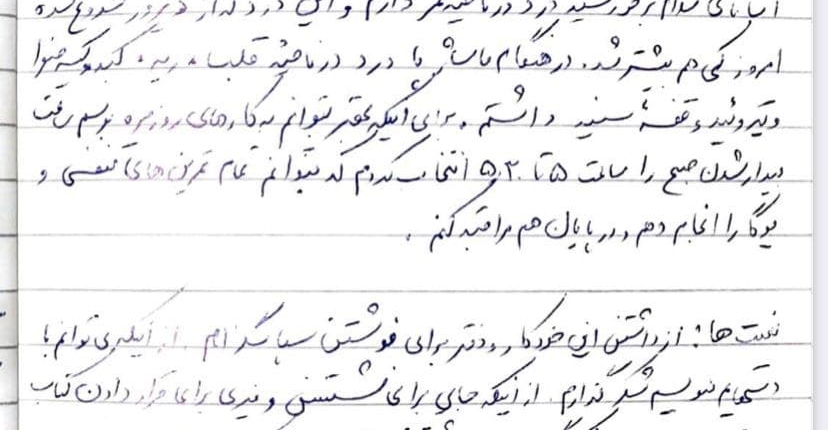 درد در ناحیه کمر دارم و این درد که از دیروز شروع شده
امروز کمی هم بیشتر شد. در هنگام ماساژ ها درد در ناحیه قلب، ریه، کبد و کیسه صفرا
و تیروئید و قفسهٔ سینه داشتم. برای اینکه بهتر بتوانم به کارهای روزمره برسم ساعت
بیدار شدن صبح را ساعت ۵ تا ۵:۳۰ انتخاب کردم که بتوانم تمام تمرین‌های تنفسی و
یوگا را انجام دهم و در پایان هم مراقبه کنم.
نعمت ها: از داشتن این خودکار و دفتر برای نوشتن سپاسگزارم. از اینکه می‌توانم با
دستهایم بنویسم شکرگذارم. از اینکه جایی برای نشستن و میزی برای قرار دادن کتاب